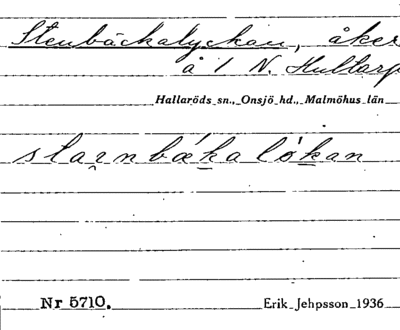 Stenbäckalyckan, åker
å 1 N. Hultarp
Hallaröds sn., Onsjö hd., Malmöhus län
starnbækalókan
Nr 5710.
Erik Jehpsson 1936